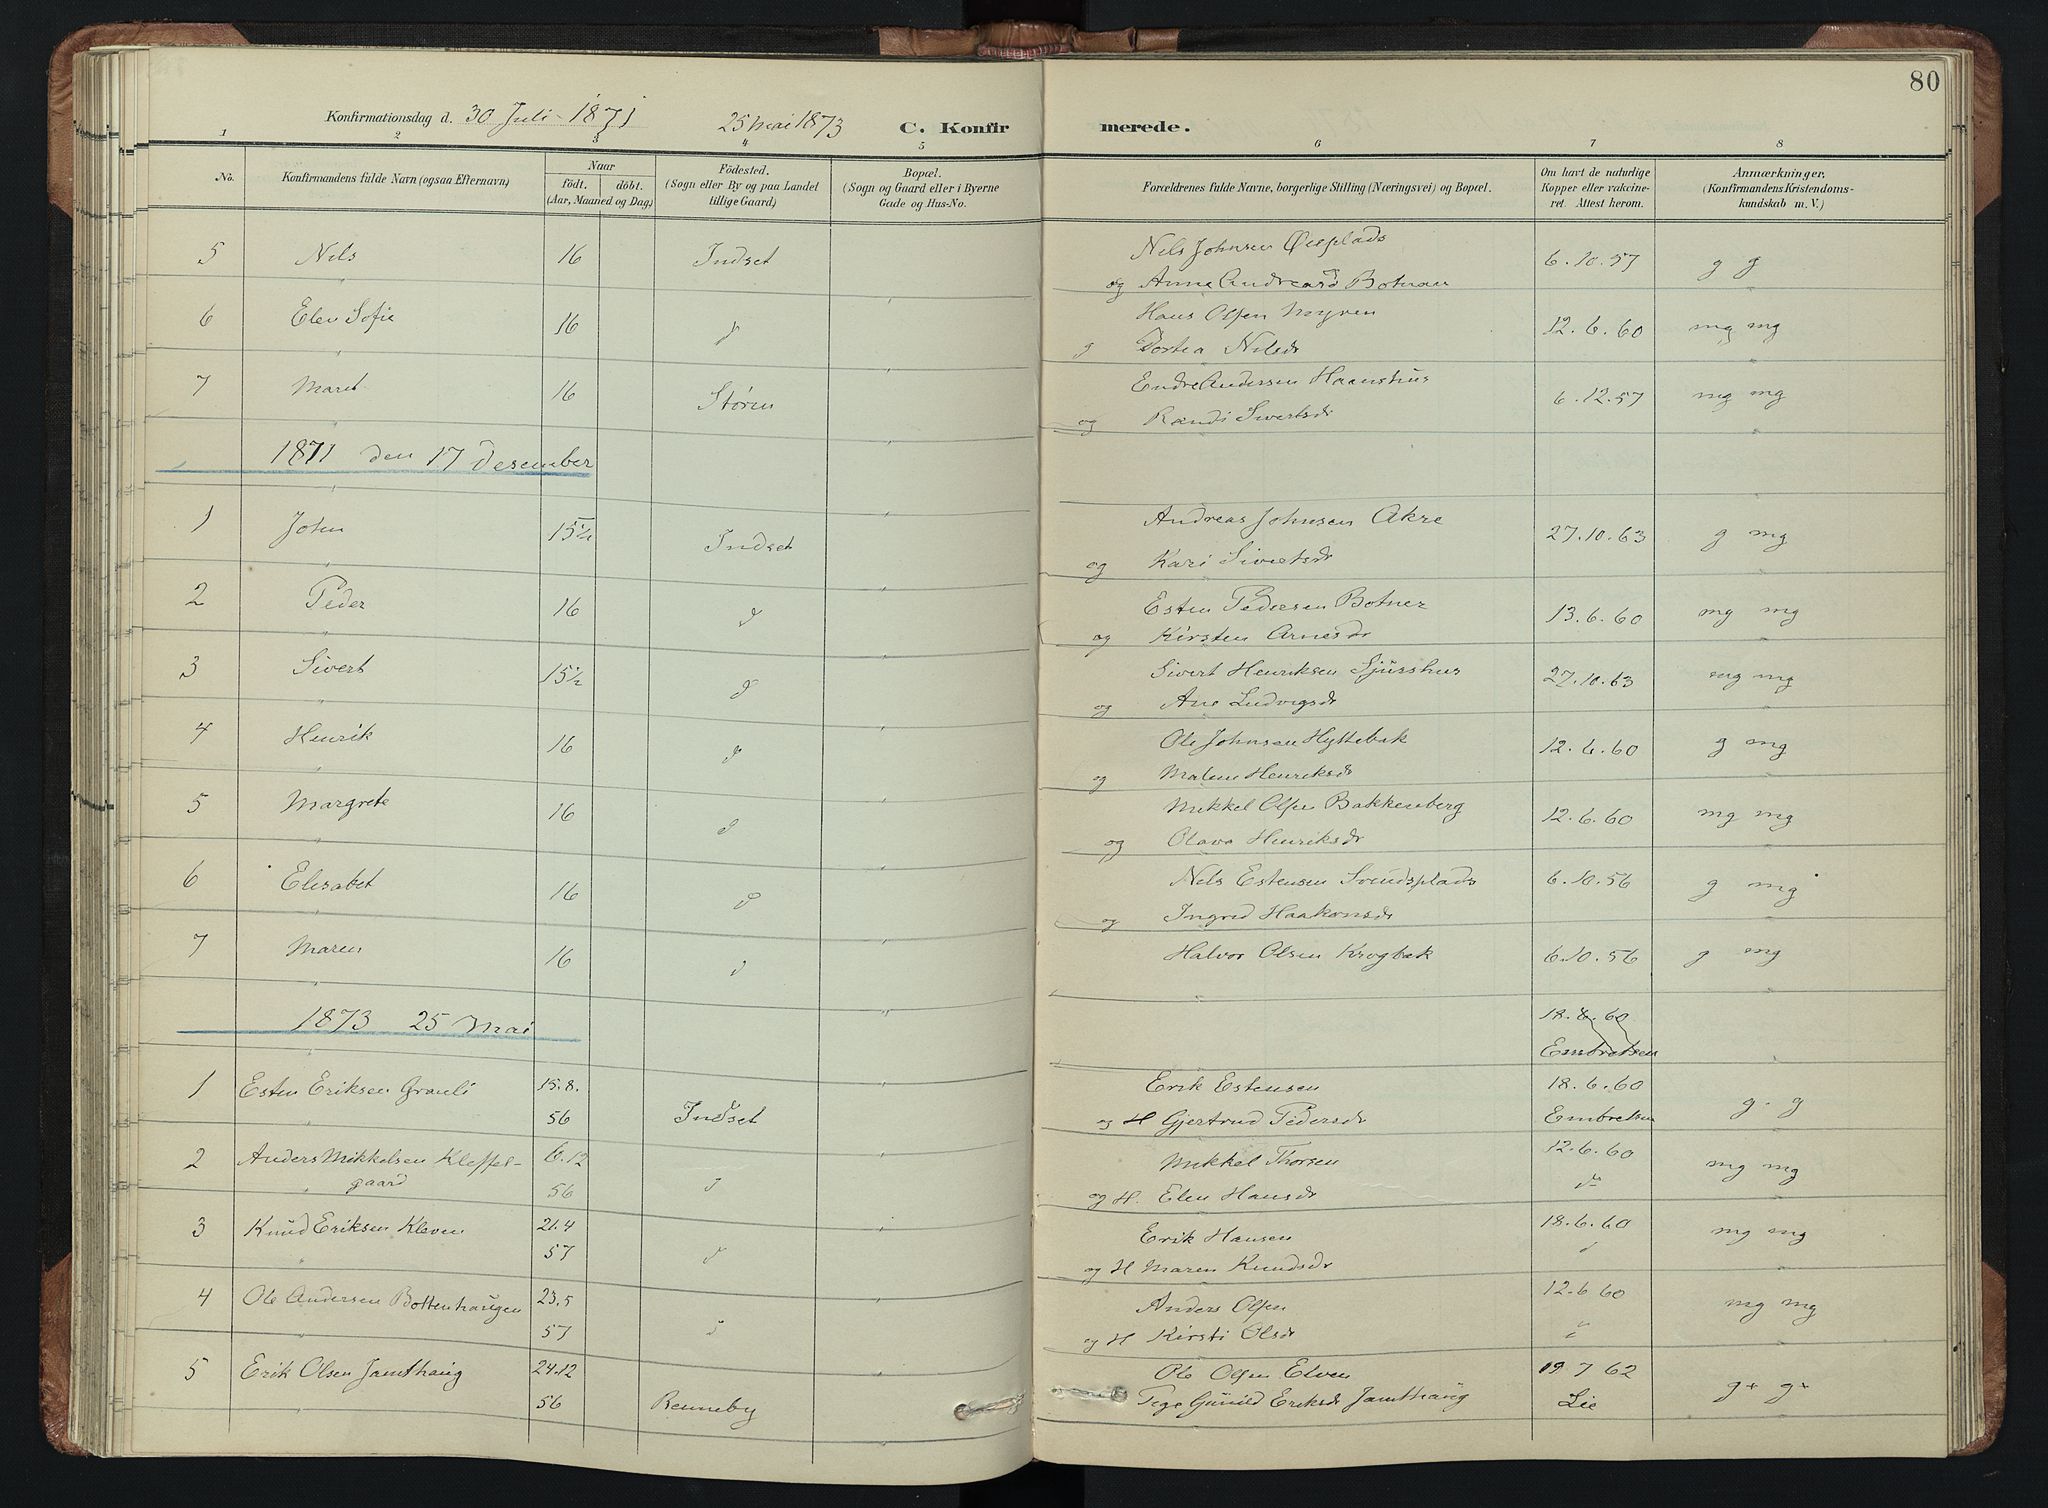 80
Konfirmationsdag d. 30 Juli 1871 25 Mai 1873 C. Konfirmerede.
1 2 3 4 5 6 7 8
No. Konfirmandens fulde Navn (ogsaa Efternavn) Naar födt. döbt. (Aar, Maaned og Dag) Födested. (Sogn eller By og paa Landet tillige Gaard) Bopæl. (Sogn og Gaard eller i Byerne Gade og Hus-No. Forældrenes fulde Navne, borgerlige Stilling (Næringsvei) og Bopæl. Om havt de naturlige Kopper eller vakcineret. Attest herom. Anmærkninger, (Konfirmandens Kristendomskundskab m. V.)
5 Nils 16 Indset Nils Johnsen 6.10.57 g g
og Anne
6 Elen Sofie 16 d Hans Olsen Myren 12.6.60 mg mg
Dortea Nilsdr
7 Maret 16 Støren Endre Andersen Haanshus 6.12.57 mg mg
og Randi Sivertsdr
1871 den 17 Desember
1 John 15½ Indset Andreas Johnsen Akre 27.10.63 g mg
og Kari Sivertsdr
2 Peder 16 d Esten Pedersen Botner 13.6.60 mg mg
og Kirsten Arnesdr
3 Sivert 15½ d Sivert Henriksen Sjursshus 27.10.63 mg mg
og Ane Ludvigsdr
4 Henrik 16 d Ole Johnsen Hyttebak 12.6.60 g mg
og Malene Henriksdr
5 Margrete 16 d Mikkel Olsen Bakkenberg 12.6.60 mg mg
og Olava Henriksdr
6 Elisabet 16 d Nils Estensen Svendsplads 6.10.56 g mg
og Ingrid Haakonsdr
7 Maren 16 d Halvor Olsen Krogbak 6.10.56 g mg
1873 25 Mai 18.8.60
Embretsen
1 Esten Eriksen Grauli 15.8. Erik Estensen 18.6.60 g g
56 Indset og H Gjertrud Pedersdr Embretsen
2 Anders Mikkelsen Kleffel- 6.12 Mikkel Thorsen 12.6.60 mg mg
gaard 56 d og H. Elen Hansdr do
3 Knud Eriksen Kleven 21.4 Erik Hansen 18.6.60 mg mg
57 d og H Maren Knudsdr d
4 Ole Andersen Bottenhaugen 23.5 Anders Olsen 12.6 60 mg mg
57 d og H Kirsti Olsdr
5 Erik Olsen Jamthaug 24.12 Ole Olsen Elven 19 7 62 g+ g+
56 Renneby Pige Gunild Eriksdr Jamthaug Lie